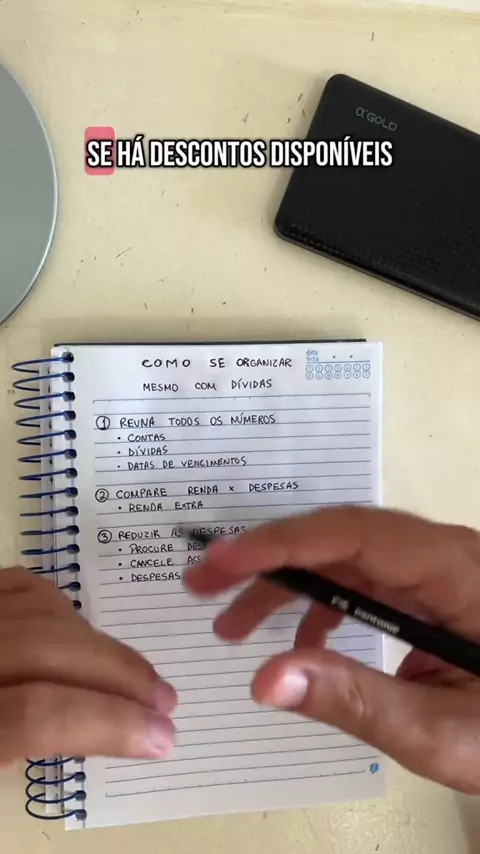 α'GOLD
SE HÁ DESCONTOS DISPONÍVEIS
COMO SE ORGANIZAR
MESMO COM DÍVIDAS
data
① REUNA TODOS OS NÚMEROS
• CONTAS
• DÍVIDAS
• DATAS DE VENCIMENTOS
② COMPARE RENDA × DESPESAS
• RENDA EXTRA
③ REDUZIR AS DESPESAS
• PROCURE
• CANCELE
• DESPESAS